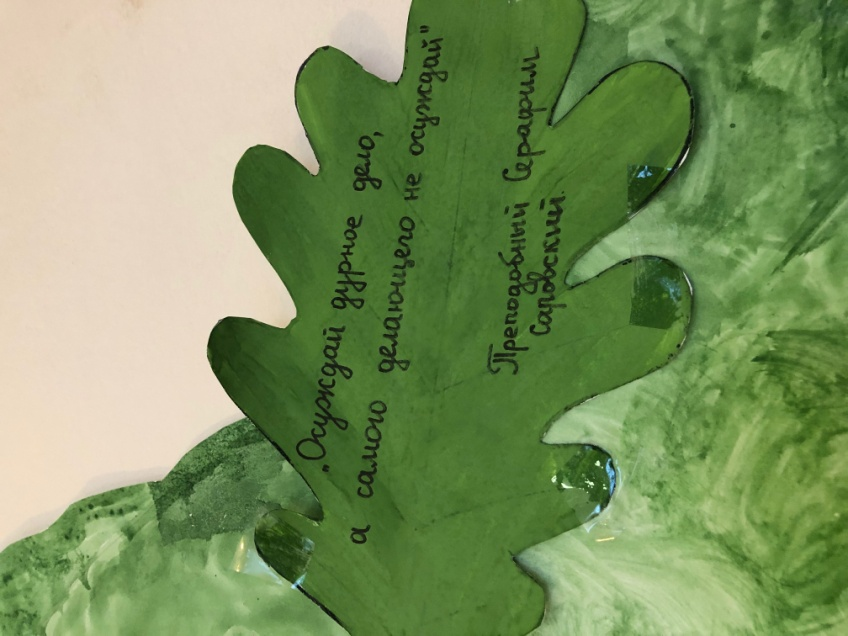 „Осуждай дурное дело,
а самого делающего не осуждай"
Преподобный Серафим
Саровский.